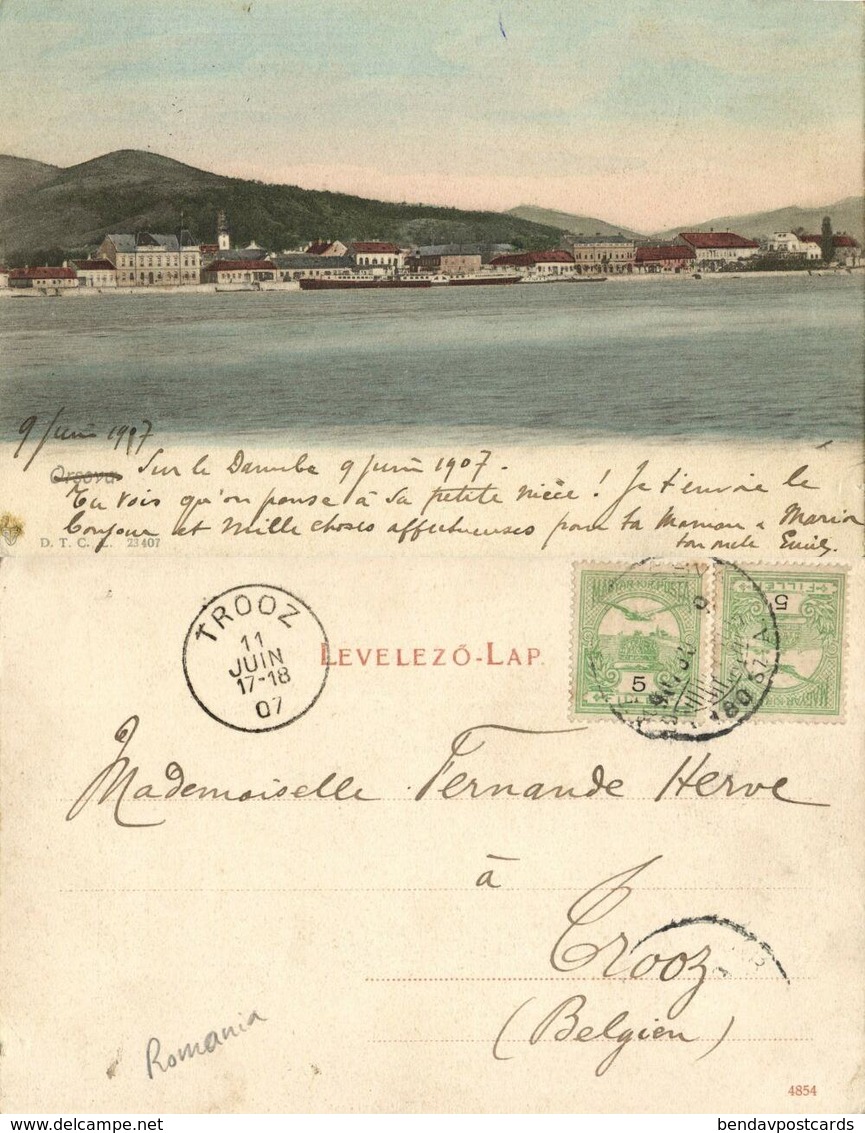 9 Juin 1907
Orsova Sur le Danube 9 Juin 1907.
Tu vois qu'on pense à sa petite nièce! Je t'envoie le
bonjour et mille choses affectueuses pour ta Maman & Maria
ton oncle Emile
D. T. C. L. 23407
TROOZ
11
JUIN
17-18
07
LEVELEZŐ-LAP.
MAGYAR·KIR·POSTA
5
FILLÉR
MAGYAR·KIR·POSTA
5
FILLÉR
Mademoiselle Fernande Herve
à
Trooz
(Belgien)
Romania
4854
bendavpostcards